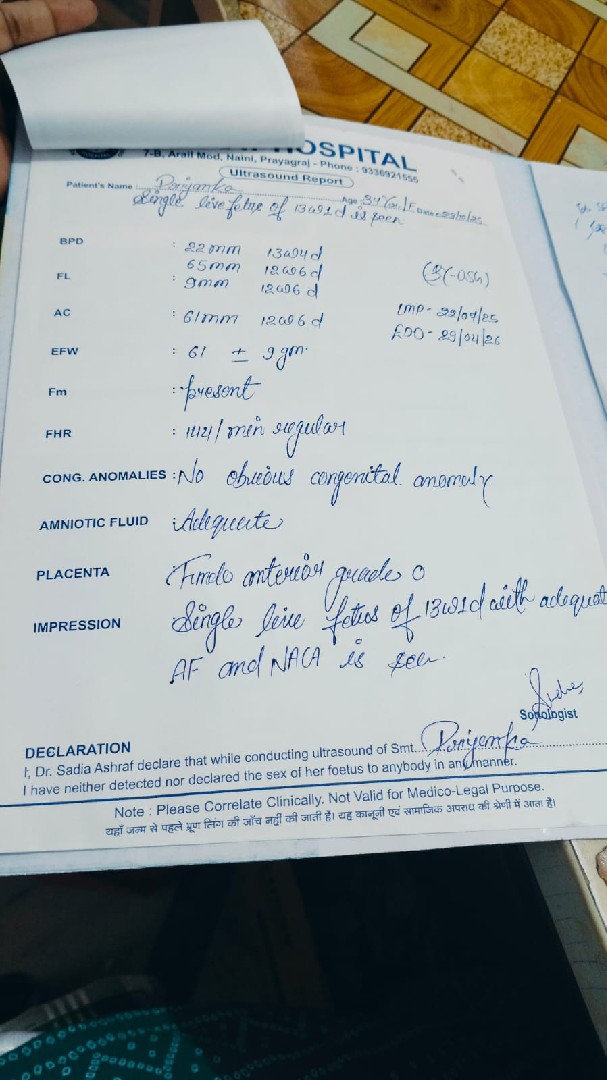 HOSPITAL
7-B, Arail Mod, Naini, Prayagraj - Phone : 9336921556
Ultrasound Report
Patient's Name Priyanka Age 31 Yrs/F Date
Single live fetus of 13w1d is seen
BPD : 22mm 13w4d
65mm 12w6d
FL : 9mm 12w6d
AC : 61mm 12w6d
(By-USG)
LMP - 22/07/25
EDD - 29/04/26
EFW : 61 ± 9gm.
Fm : present
FHR : /min regular
CONG. ANOMALIES : No obvious congenital anomaly
AMNIOTIC FLUID : Adequate
PLACENTA Fundo anterior grade 0
IMPRESSION Single live fetus of 13w1d with adequat
AF and NACA is seen.
Sonologist
DECLARATION
I, Dr. Sadia Ashraf declare that while conducting ultrasound of Smt. Priyanka
I have neither detected nor declared the sex of her foetus to anybody in any manner.
Note : Please Correlate Clinically. Not Valid for Medico-Legal Purpose.
यहाँ जन्म से पहले भ्रूण लिंग की जाँच नहीं की जाती है। यह कानूनी एवं सामाजिक अपराध की श्रेणी में आता है।